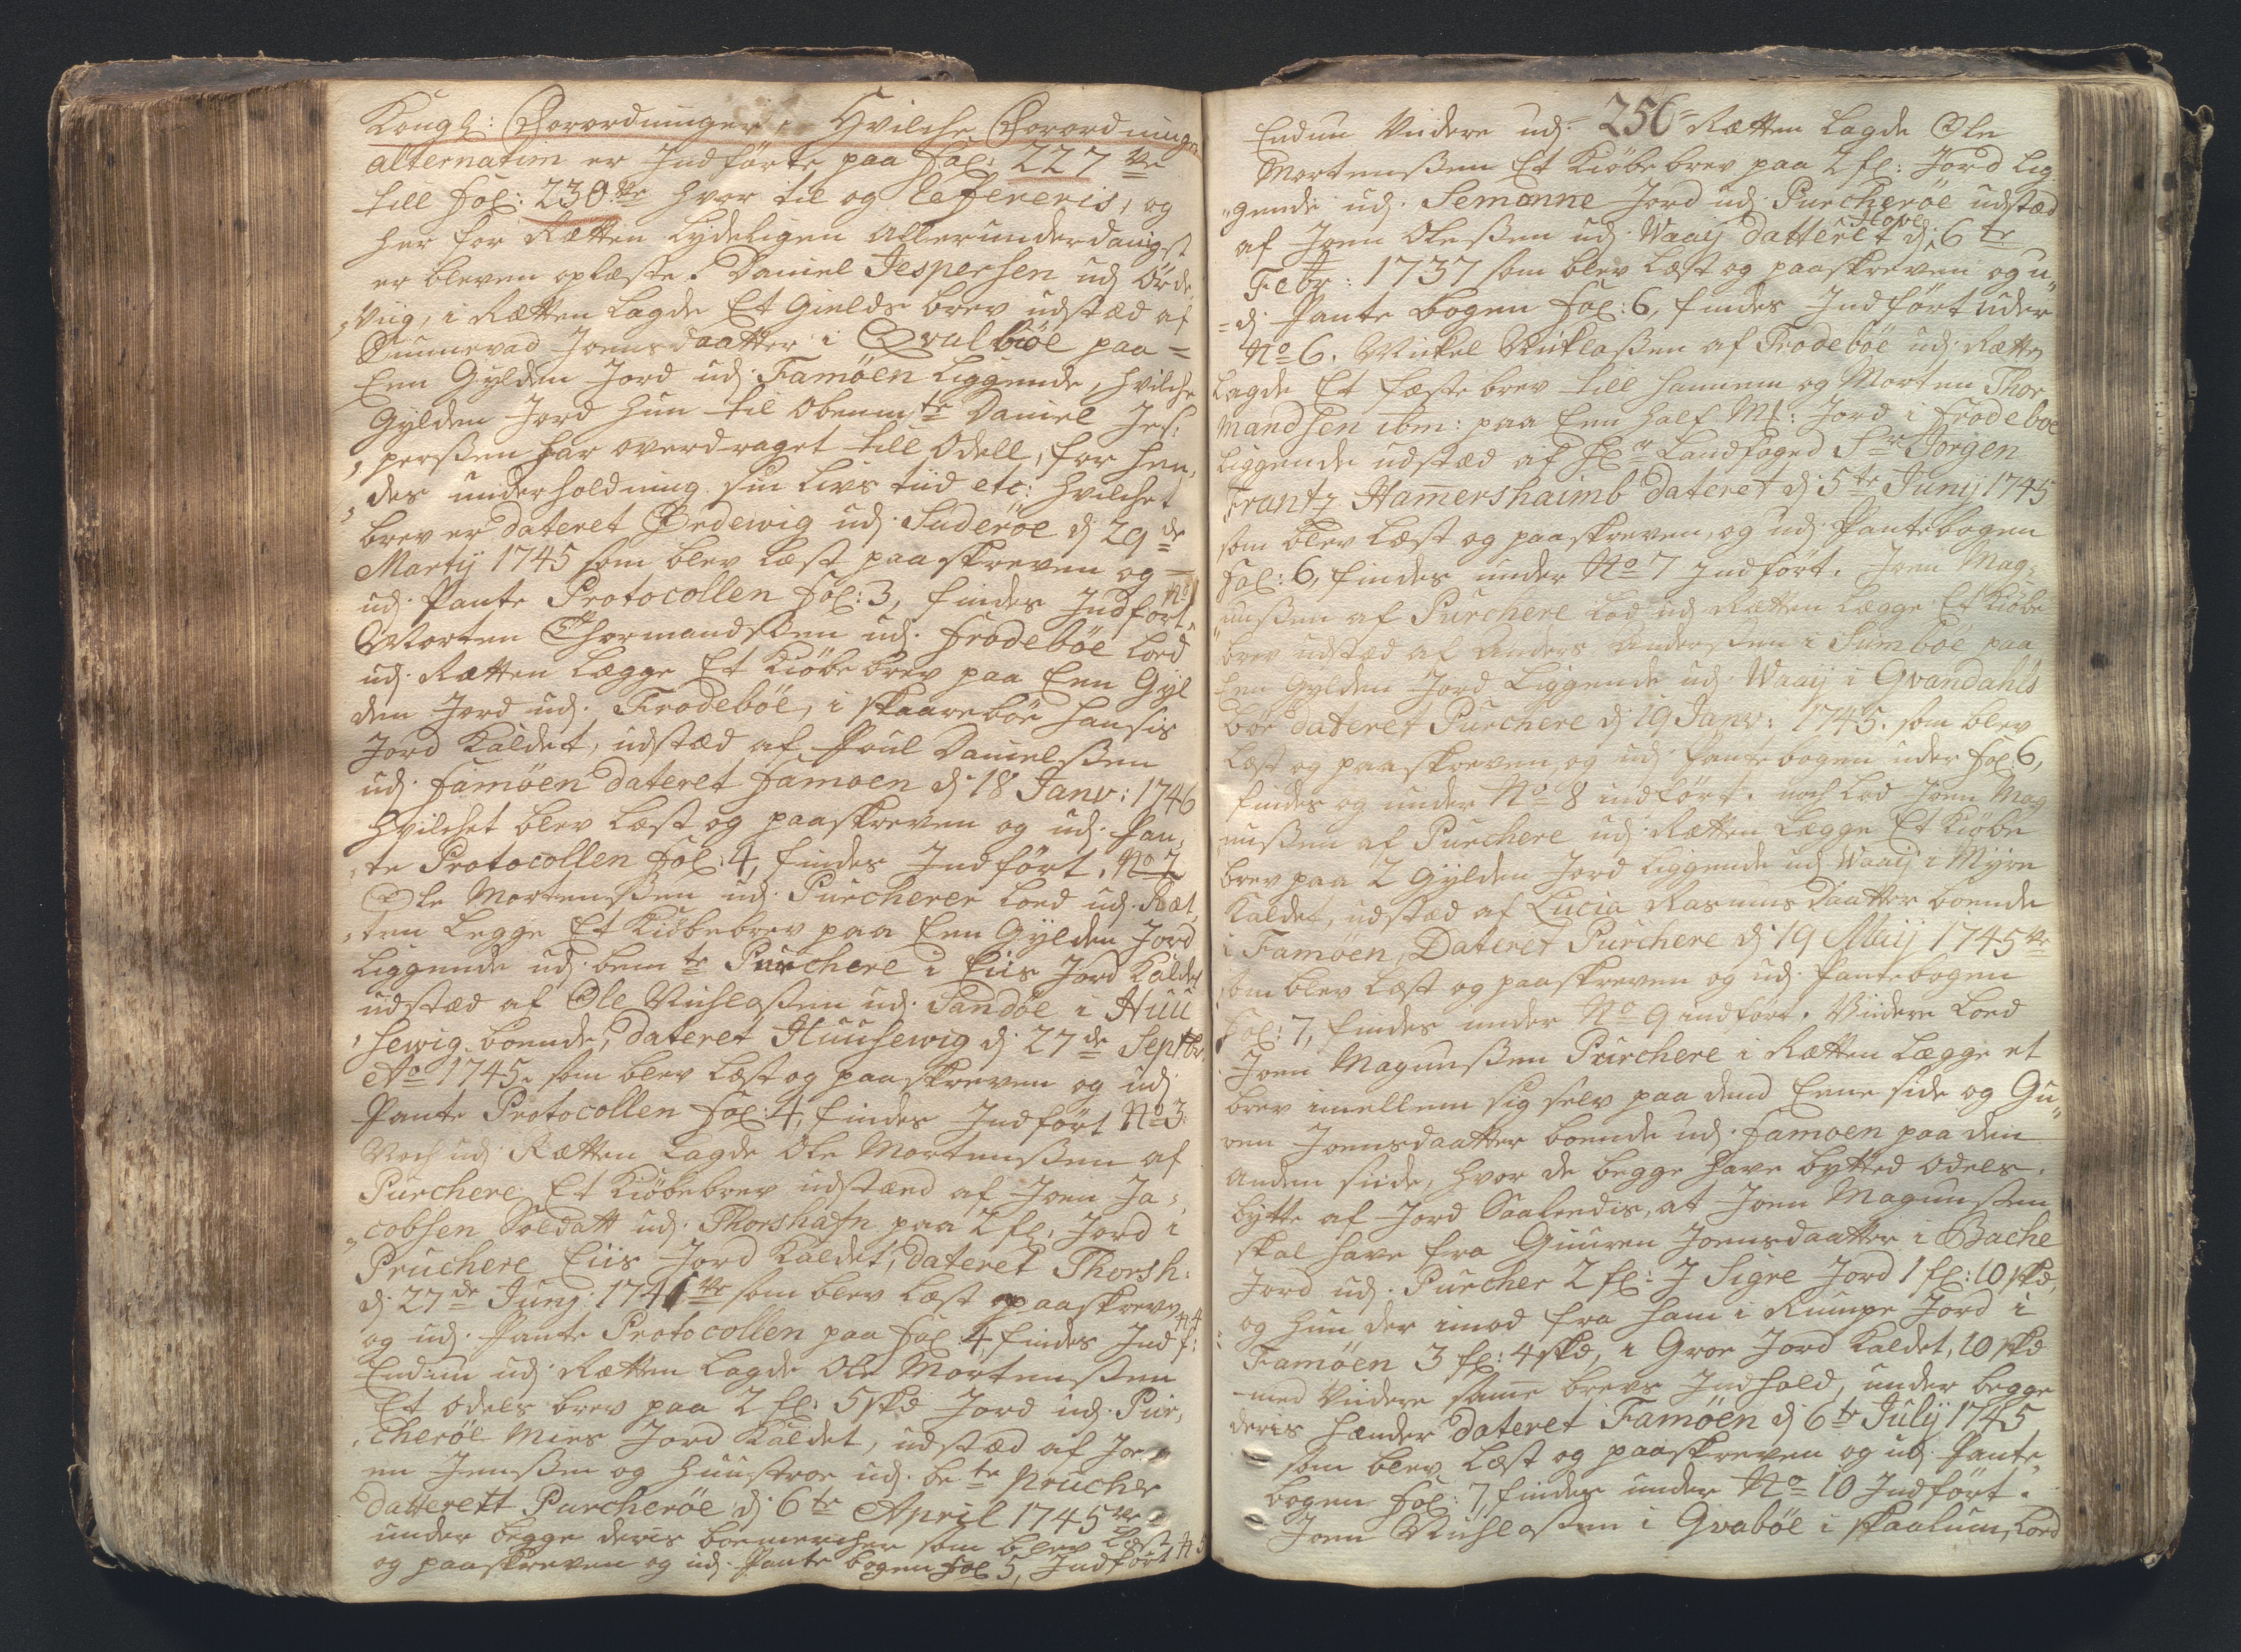 Kongl: Forordninger. Hvilche Forordninger
alternatim er Indførte paa Fol: 227 de
till Fol: 230 de hvor til og refereris, og
her for Rætten lydeligen allerunderdanigst
er bleven oplæste. Daniel Jespersen udj Örde
„viig, i Rætten lagde Et Gields brev udstæd af
Sunnevad Joensdaatter i Qvalböe paa =
Een Gylden Jord udj Famöen liggende, hvilche
Gylden Jord hun til Obenmte Daniel Jes„
„perßen har overdraget till Odell, for hen„
„des underholdning sin Livs tiid etc: hvilchet
brev er dateret Ördewig udj Suderöe dj 29 de
Martij 1745 som blev læst paaskreven og
udj Pante Protocollen Fol: 3, findes Indført No 1
Morten Thormandßen udj Frodeböe loed
udj Rætten lægge Et Kiöbe brev paa Een Gyl
den Jord udj Frodeböe, i skaareböe hansis
Jord kaldet, udstæd af Poul Danielßen
udj Famöen dateret Famoen dj 18 Janv: 1746
hvilchet blev læst og paaskreven og udj Pan„
„te Protocollen Fol: 4, findes Indført. No 2
Ole Mortenßen udj Purcherer loed udj Ræt„
„ten legge Et Kiöbebrev paa Een Gylden Jord
liggende udj bemte Purchere i Eiis Jord kaldet
udstæd af Ole Nichlaßen udj Sandöe i Huu
„sewig boende, dateret Huusewig dj 27 de Septbr.
Ao 1745. som blev læst og paaskreven og udj
Pante Protocollen Fol: 4, findes Indført No 3.
Noch udj Rætten lagde Ole Mortenßen af
Purchere Et Kiöbebrev udstænd af Joen Ja„
„cobsen Soldatt udj Thorshafn paa 2 fl. Jord i
Pruchere Eiis Jord kaldet, dateret Thorsh:
dj 27 de Junij 174 som blev læst paaskreven
og udj Pante Protocollen paa Fol 4, findes Indf: N 4
Endnu udj Rætten lagde Ole Mortenßen
Et odels brev paa 2 fl: 5 skd Jord udj Pur„
„cheröe Mies Jord kaldet, udstæd af Jo
en Jenßen og Huustroe udj bete Prucher
datterett Purcheröe dj 6 te April 1745
under begge deris boemercher som blev læst
og paaskreven og udj Pante bogen Fol 5, Indført N 5
256
Endnu Viidere udj Rætten lagde Ole
Mortenßen Et Kiöbe brev paa 2 fl: Jord lig
„gende udj Semanne Jord udj Purcheröe udstæd
af Joen Oleßen udj Waaij datteret Hope dj 6 te
Febr: 1737 som blev læst og paaskreven og u„
=dj Pante bogen Fol: 6, findes Indført under
No 6. Mickel Nicklaßen af Frodeböe udj Rætten
lagde Et fæste brev till hannem og Morten Thor
mandsen ibm: paa Een half Mk: Jord i Frodeboe
liggende udstæd af Hr Landfoged Sr Jorgen
Frantz Hamershaimb dateret dj 5 te Junij 1745
som blev læst og paaskreven, og udj Pantebogen
Fol: 6, findes under No 7 Indført. Joen Mag„
„nußen af Purchere lod udj Rætten lægge Et Kiöbe
brev udstæd af Anders Anderßen i Sumböe paa
Een Gylden Jord liggende udj Waaij i Qvandahls
böe dateret Purchere dj 19 Janv: 1745. som blev
læst og paaskreven og udj Pantebogen under Fol: 6,
findes og under No 8 indført. noch lod Joen Mag
nußen af Purchere udj Rætten lægge Et Kiöbe
brev paa 2 Gylden Jord liggende udj Waaij i Myre
kaldet, udstæd af Lucia Rasmusdaatter boende
i Famöen, Dateret Purchere dj 19 Maij 1745
som blev læst og paaskreven og udj Pantebogen
Fol: 7, findes under No 9 indført. Viidere loed
Joen Magnußen Purchere i Rætten lægge et
brev imellem sig selv paa dend Eene side og Gu„
ren Joensdaatter boende udj Famoen paa den
anden siide, hvor de begge have bytted odels
bytte af Jord Saaledis, at Joen Magnußen
skal have fra Guuren Joensdaatter i Bache
Jord udj Purcher 2 fl: I Sigre Jord 1 fl: 10 skd,
og hun der imod fra ham i Rumpe Jord i
Famöen 3 fl: 4 skd, i Groe Jord kaldet, 10 skd
med Viidere same brevs Indhold, under begge
deris hænder dateret Famöen dj 6 te Julij 1745
som blev læst og paaskreven og udj Pante„
bogen Fol: 7, findes under No 10 Indført.
Joen Nichlaßen i Qvaböe i skaalum, loed